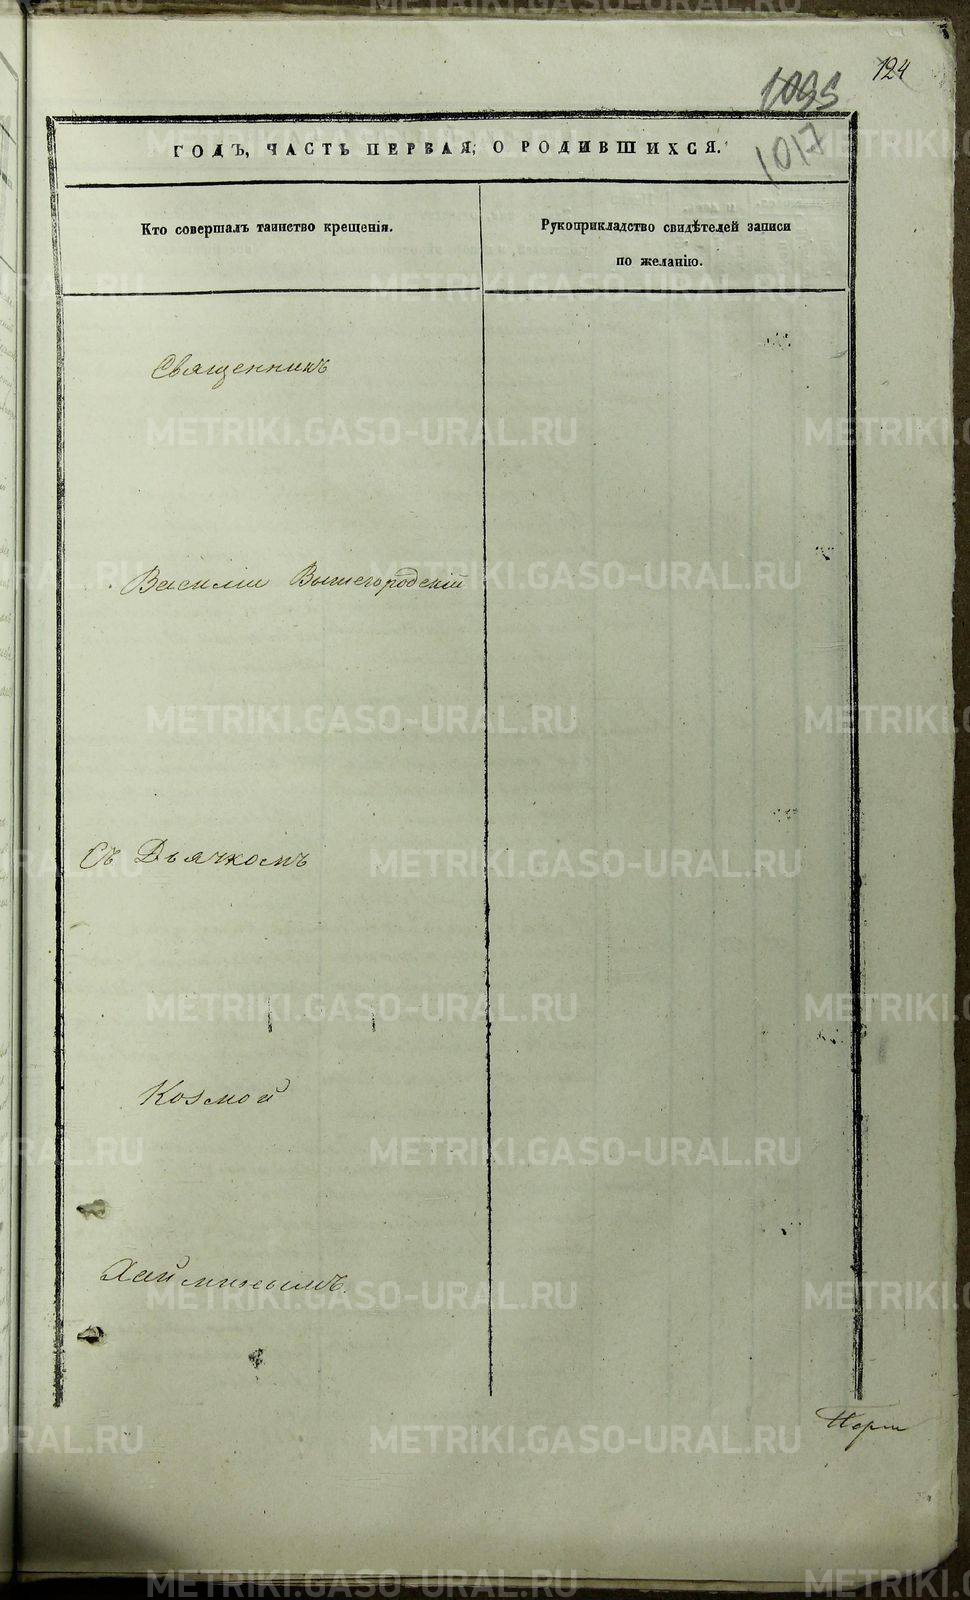 124
1017
ГОДЪ, ЧАСТЬ ПЕРВАЯ, О РОДИВШИХСЯ.
Кто совершалъ таинство крещенія.
Рукоприкладство свидѣтелей записи
по желанію.
Священникъ
Василій Вышегородскій
Съ Дьячкомъ
Козмой
METRIKI.GASO-URAL.RU